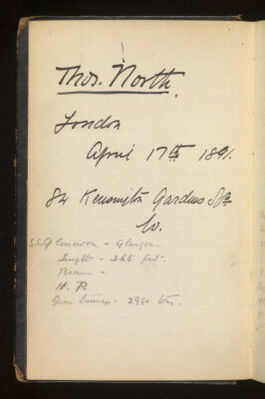 Thos. North.
London
April 17th 1891.
84 Kensington Gardens Sqre
W.
Glasgow.
Length - 365 feet.
Beam -
H. P.
Gross tonnage - 2980 tons.